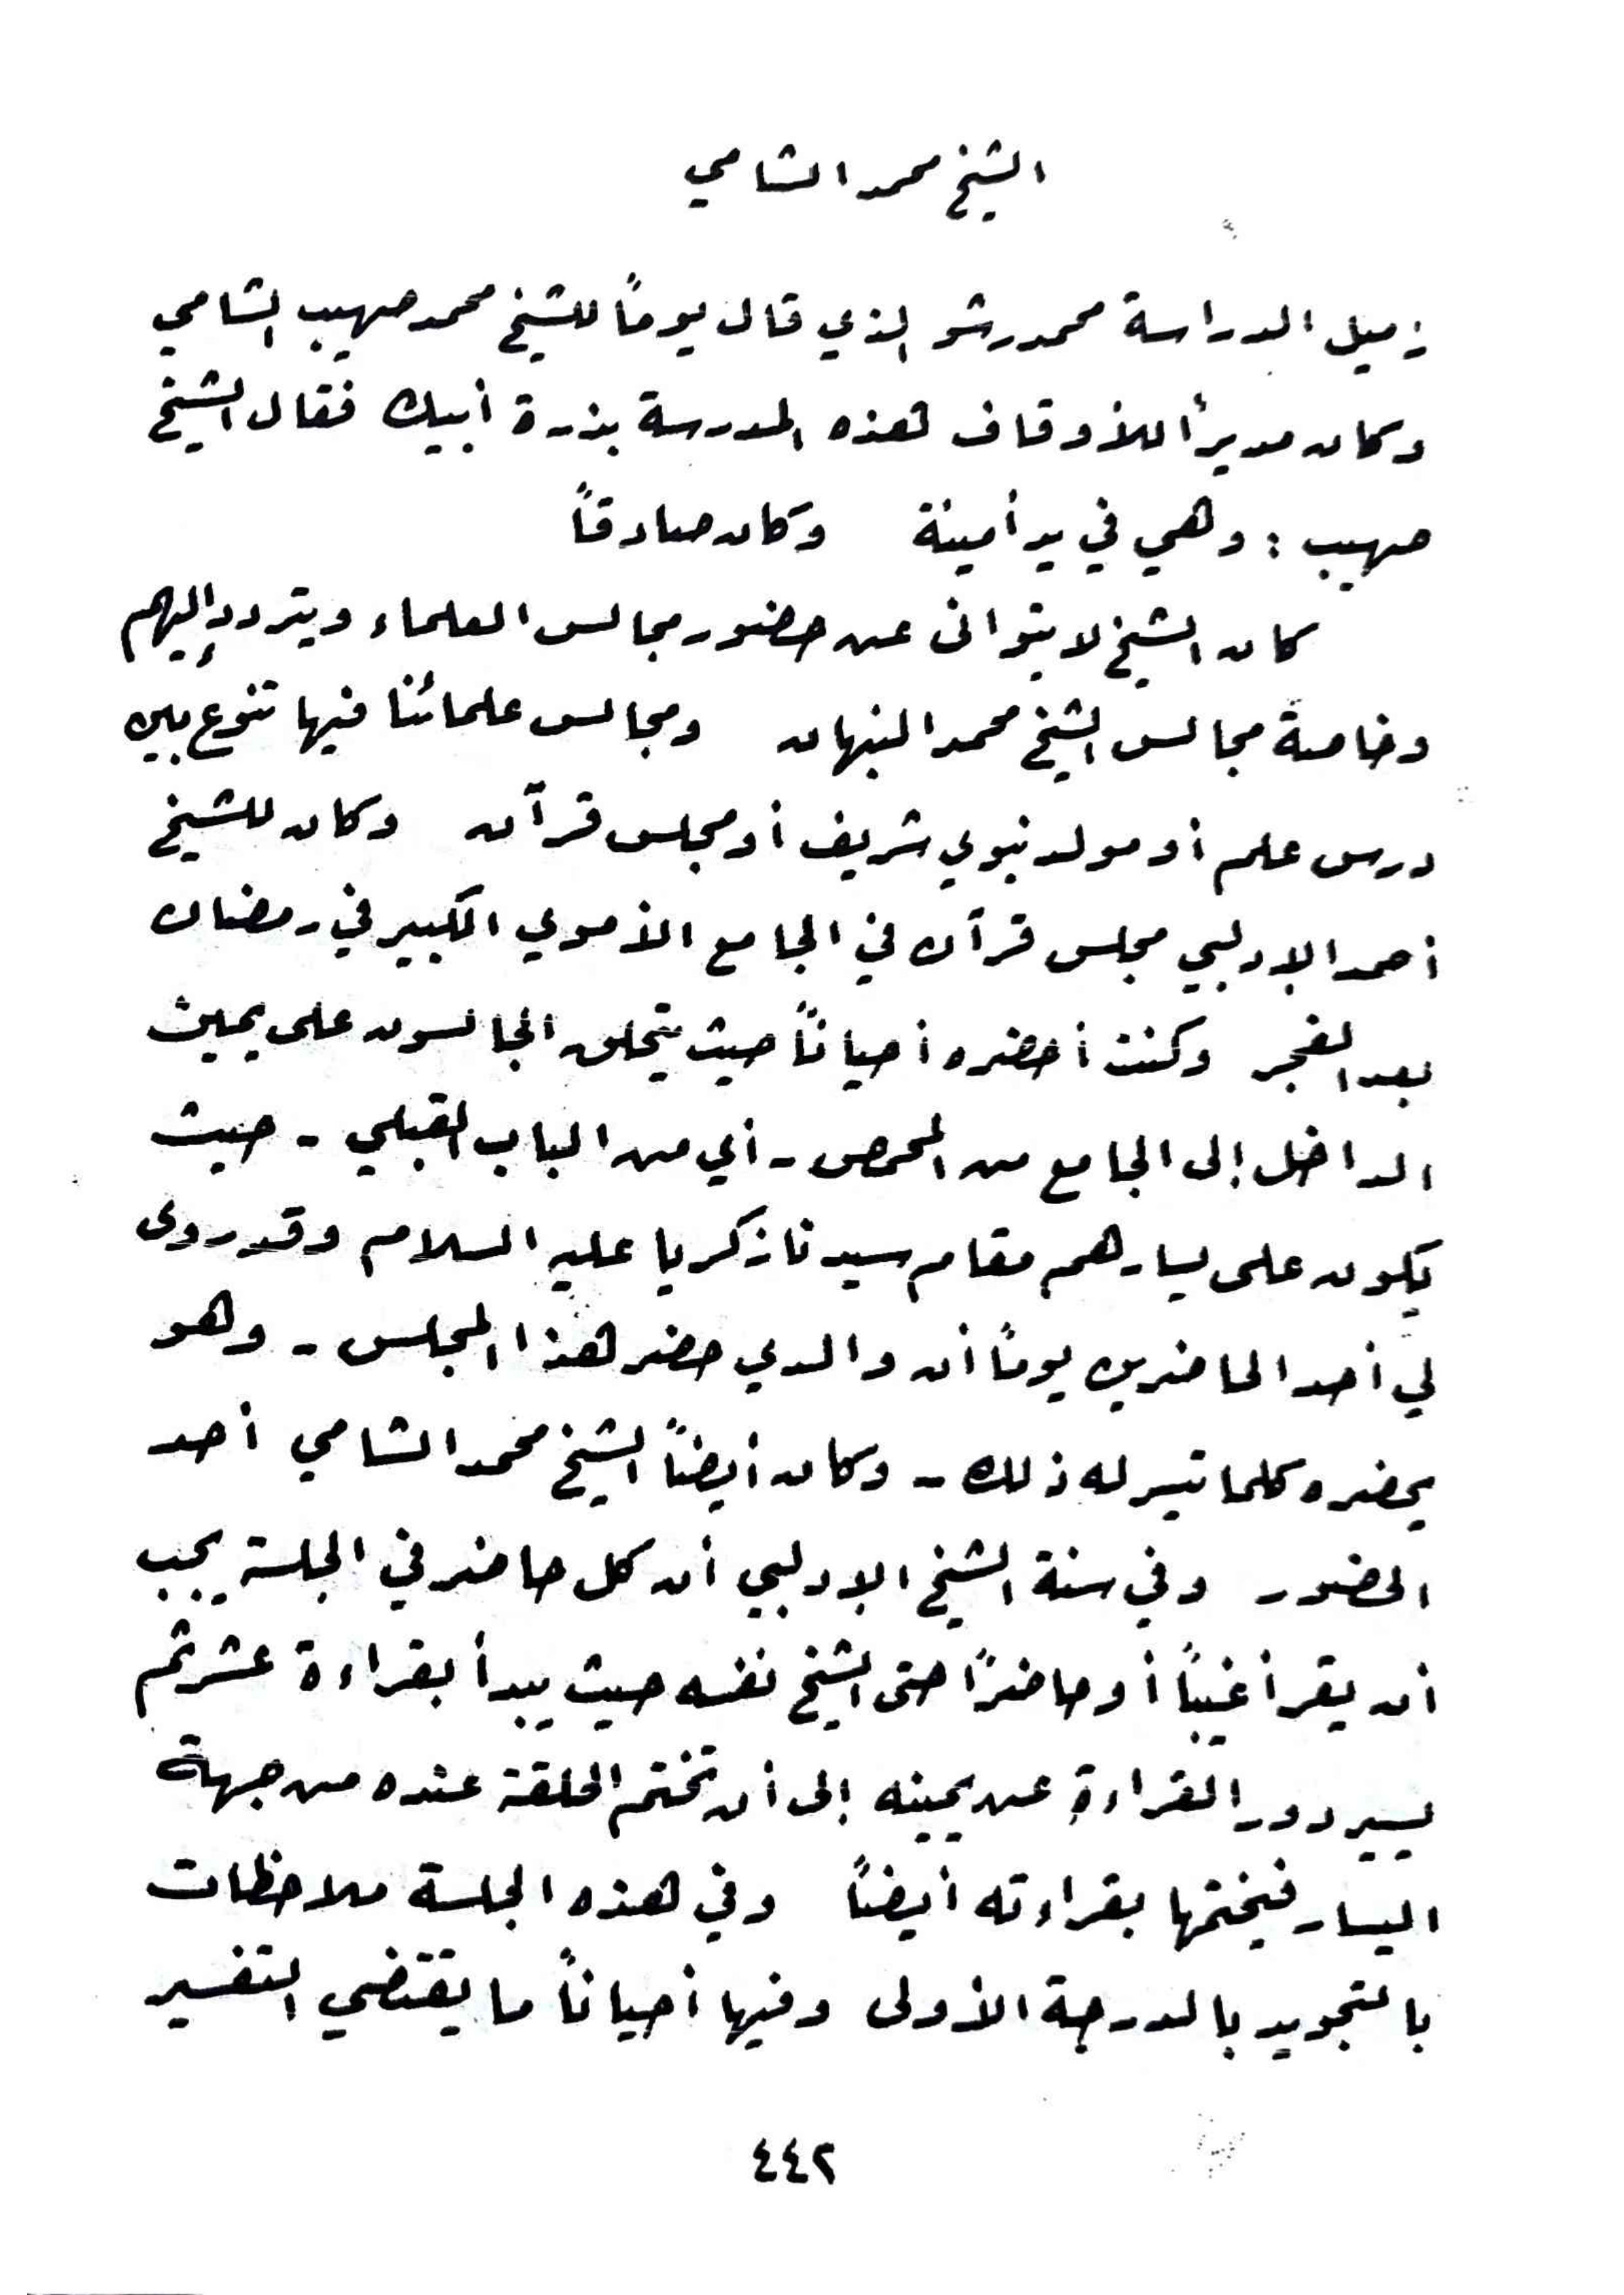 الشيخ محمد الشامي
زميل الدراسة محمد رشو الذي قال يوماً للشيخ محمد صهيب الشامي
وكان مديراً للأوقاف هذه المدرسة بذرة أبيك فقال الشيخ
صهيب : وهي في يد أمينة وكان صادقاً
كان الشيخ لا يتوانى عن حضور مجالس العلماء ويتردد إليهم
وخاصة مجالس الشيخ محمد النبهان ومجالس علمائنا فيها تنوع بين
درس علم أو مولد نبوي شريف أو مجلس قرآن وكان للشيخ
أحمد الإدلبي مجلس قرآن في الجامع الأموي الكبير في رمضان
بعد الفجر وكنت أحضره أحياناً حيث يتحلق الجالسون على يمين
الداخل إلى الجامع من المحمص - أي من الباب القبلي - حيث
يكون على يسارهم مقام سيدنا زكريا عليه السلام وقد روى
لي أحد الحاضرين يوماً أن والدي حضر هذا المجلس - وهو
يحضره كلما تيسر له ذلك - وكان أيضاً الشيخ محمد الشامي أحد
الحضور وفي سنة الشيخ الإدلبي أن كل حاضر في الجلسة يجب
أن يقرأ غيباً أو حاضراً حتى الشيخ نفسه حيث يبدأ بقراءة عشر ثم
يسير دور القراءة عن يمينه إلى أن تختم الحلقة عنده من جهة
اليسار فيختمها بقراءته أيضاً وفي هذه الجلسة ملاحظات
بالتجويد بالدرجة الأولى وفيها أحياناً ما يقتضي التفسير
٤٤٢